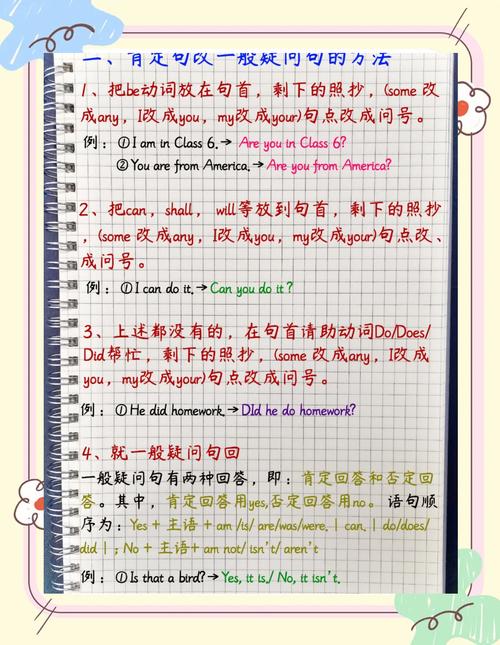 一、肯定句改一般疑问句的方法
1、把be动词放在句首，剩下的照抄，(some 改
成any，I改成you，my改成your)句点改成问号。
例：①I am in Class 6.→ Are you in Class 6?
②You are from America.→ Are you from America?
2、把can，shall， will等放到句首，剩下的照抄
，(some 改成any，I改成you，my改成your)句点改、
成问号。
例：①I can do it.→Can you do it？
3、上述都没有的，在句首请助动词Do/Does/
Did帮忙，剩下的照抄，(some改成any，I改成
you，my改成your)句点改成问号。
例：①He did homework.→DId he do homework?
4、就一般疑问句回
一般疑问句有两种回答，即：肯定回答和否定回
答。其中，肯定回答用yes,否定回答用no。语句顺
序为：Yes + 主语 + am /is/ are/was/were. | can. | do/does/
did | ; No + 主语+ am not/ isn't/ aren't
例：①Is that a bird?→Yes, it is./ No, it isn't.